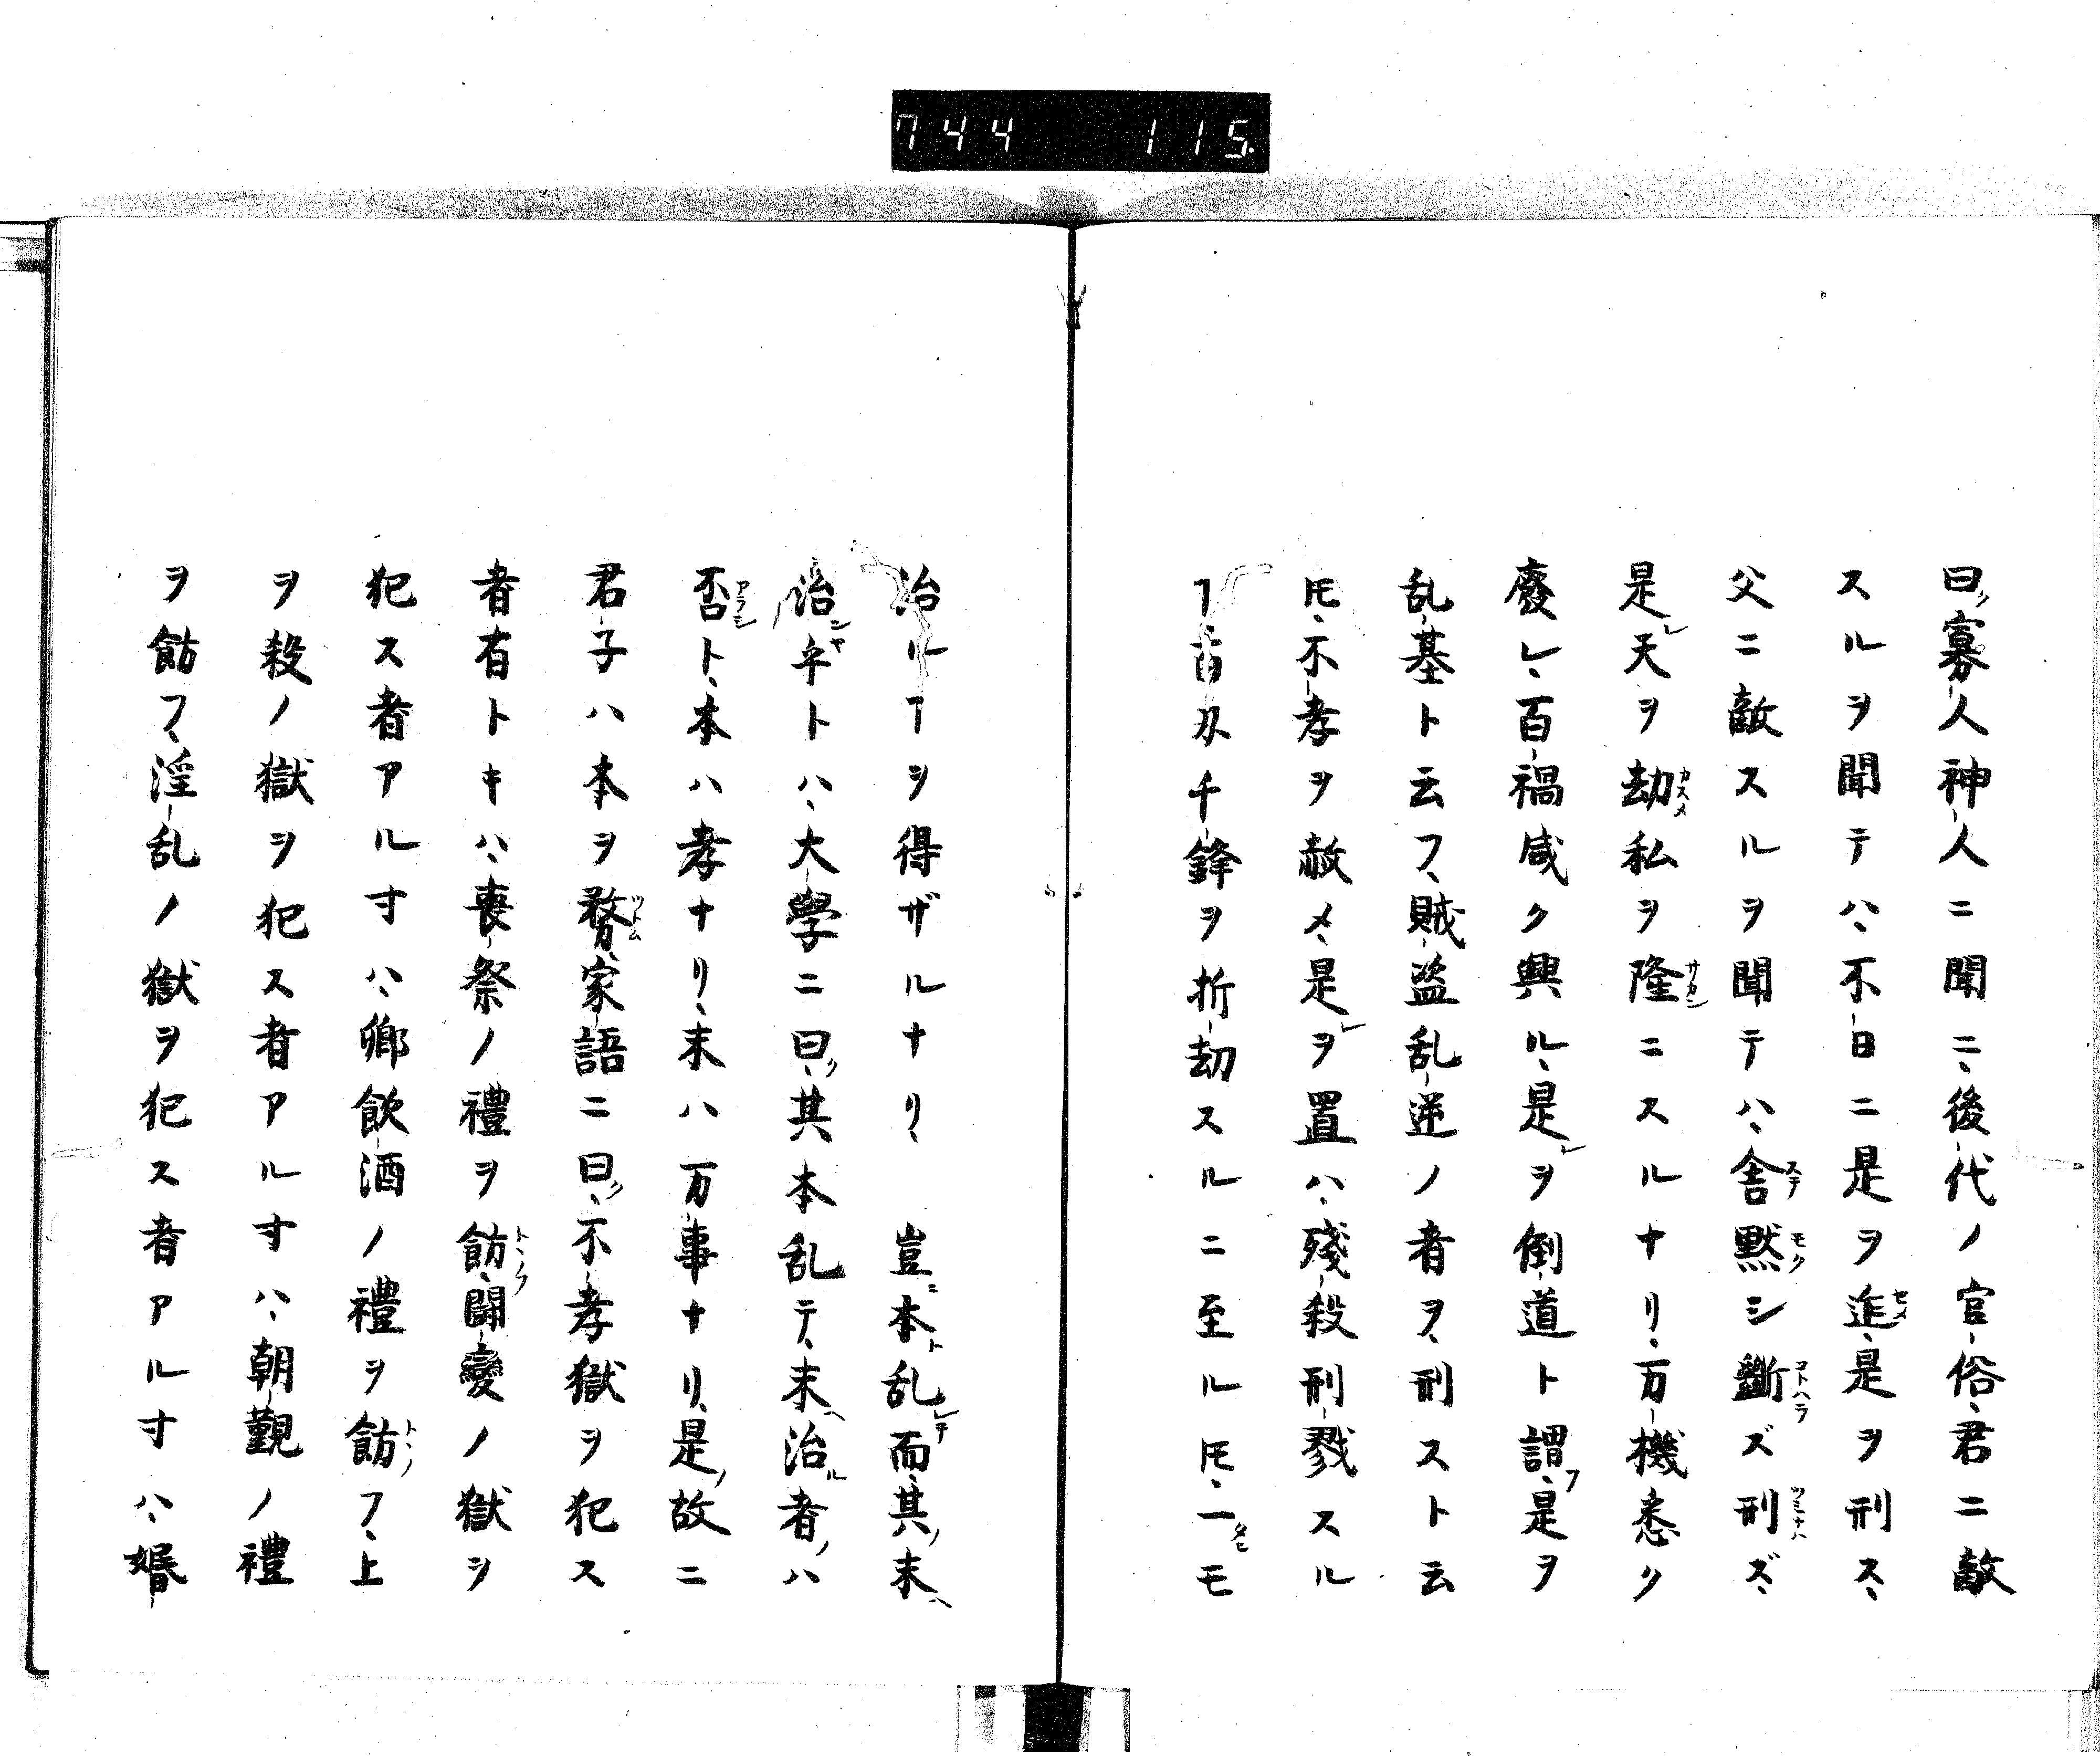 744 115
曰寡人神人ニ聞ニ、後代ノ官俗、君ニ敵
スルヲ聞テハ、不日ニ是ヲ迮、是ヲ刑ス、
父ニ敵スルヲ聞テハ、舎黙シ斷ズ刑ズ、
是天ヲ劫私ヲ隆ニスルナリ、万機悉ク
廢レ、百禍咸ク興ル、是ヲ倒道ト謂フ、是ヲ
乱基ト云フ、賊盗乱逆ノ者ヲ、刑スト云
𪜈、不孝ヲ赦メ、是ヲ置ハ、殘殺刑戮スル
ヿ、百刄千鋒ヲ折劫スルニ至ル𪜈、一モ
治ルヿヲ得ザルナリ、豈本乱而、其末
治乎トハ、大學ニ曰、其本乱テ、末治者ハ
否ト、本ハ孝ナリ、末ハ万事ナリ、是故ニ
君子ハ本ヲ務、家語ニ曰、不孝獄ヲ犯ス
者有トキハ、喪祭ノ禮ヲ飭、鬪變ノ獄ヲ
犯ス者アル寸ハ、鄕飲酒ノ禮ヲ飭フ、上
ヲ殺ノ獄ヲ犯ス者アル寸ハ、朝覲ノ禮
ヲ飭フ、淫乱ノ獄ヲ犯ス者アル寸ハ、婚